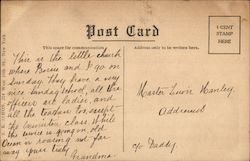 Post Card
This space for communication
Address only to be written here.
1 CENT
STAMP
HERE
This is the little church
where Bessie and I go on
Sunday. They have a very
nice Sunday School, all the
officers are ladies, and
all the teachers too except
the
class. While
the service is going on old
Ocean is roaring not far
away. yours truly
Grandma
Master Lewis Manley
Addressed
c/o Daddy.